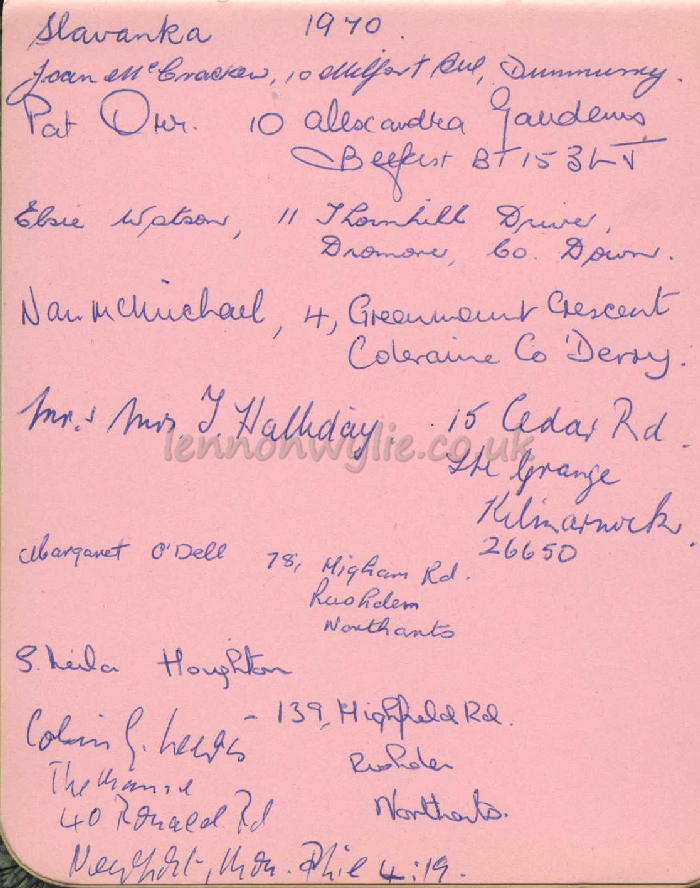 Slavanka 1970.
Joan McCracken, 10 Milfort Ave, Dunmurry.
Pat Orr. 10 Alexandra Gardens
Belfast BT15 3LJ
Elsie Watson, 11 Thornhill Drive,
Dromore, Co. Down.
Nan McMichael, 4, Greenmount Crescent
Coleraine Co Derry.
Mr. & Mrs J Halliday, 15 Cedar Rd.
lennonwylie.co.uk
The Grange
Kilmarnock.
26650
Margaret O'Dell 78, Higham Rd.
Rushden
Northants
Sheila Houghton
- 139, Highfield Rd.
Rushden
Northants.
Colin G.
The Manse
40 Ronald Rd
Newport, Mon. Phil 4:19.